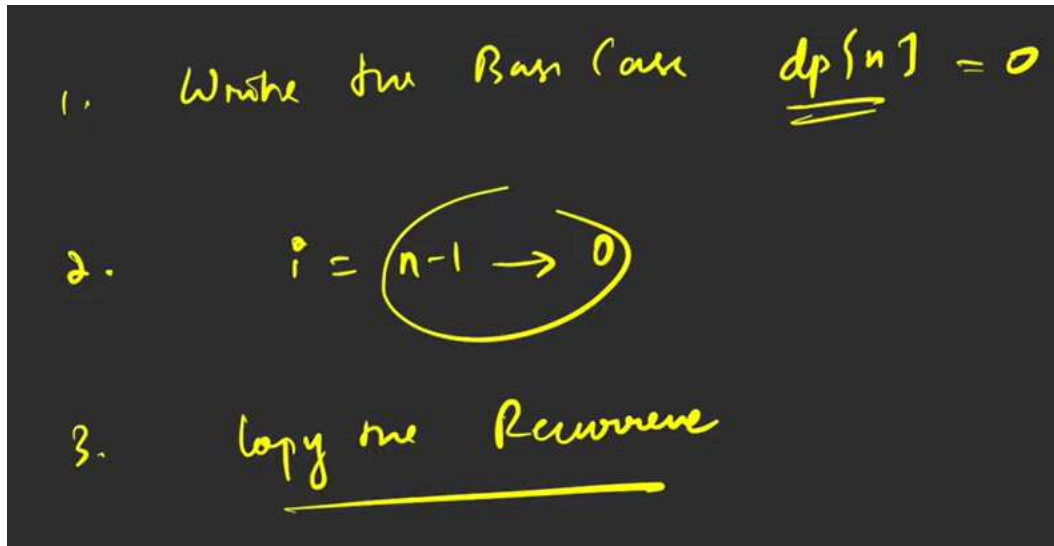 1. Write the Base Case dp[n] = 0
2. i = n-1 → 0
3. Copy the Recurrence